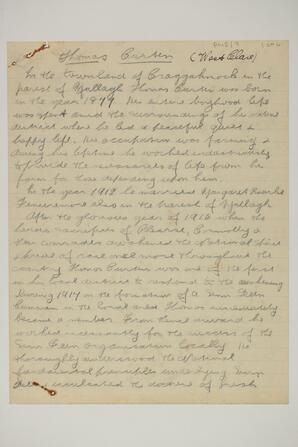 Thomas Curtin (West Clare)
In the townland of Craggaknock in the
parish of Mullagh Thomas Curtin was born
in the year 1879. His entire boyhood life
was spent amid the surroundings of his native
district where he led a peaceful quiet &
happy life. His occupation was farming &
during his lifetime he worked industriously
to provide the necessaries of life from the
farm for those depending upon him.
In the year 1912 he married Margaret
also in the parish of Mullagh
After the glorious year of 1916 when the
heroic sacrifices of Pearse, Connolly &
their comrades awakened the National spirit
once more throughout the
country Thomas Curtin was one of the first
in his local district to respond to the awakening
During 1917 on the formation of a Sinn Fein
Cumann in the local area Thomas immediately
became a member. From thence onward he
worked incessantly for the success of the
Sinn Fein organisation locally. He
thoroughly understood the National
fundamental principles underlying Sinn
Fein inculcated the doctrine of Irish